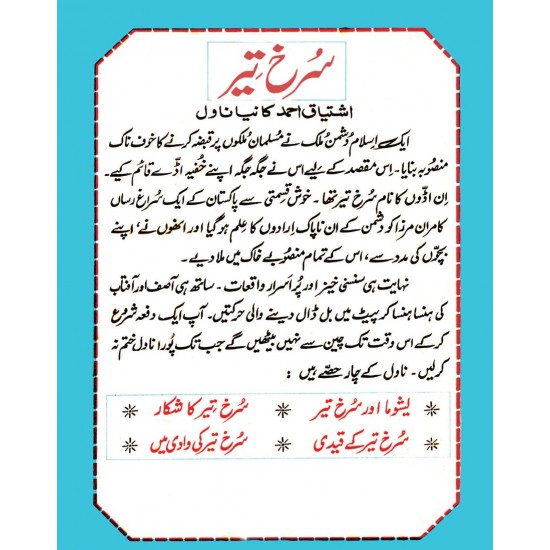 سُرخ تِیر
اشتیاق احمد کا نیا ناول
ایک اسلام دُشمن مُلک نے مُسلمان مُلکوں پر قبضہ کرنے کا خوف ناک
منصُوبہ بنایا۔ اِس مقصد کے لیے اس نے جگہ جگہ اپنے خُفیہ اڈّے قائم کیے۔
اِن اڈّوں کا نام سُرخ تیر تھا۔ خوش قسمتی سے پاکستان کے ایک سُراغ رساں
کامران مرزا کو دشمن کے ان ناپاک اِرادوں کا عِلم ہو گیا اور انھوں نے، اپنے
بچّوں کی مدد سے، اس کے تمام منصُوبے خاک میں ملا دیے۔
نہایت ہی سنسنی خیز اور پُراَسرار واقعات۔ ساتھ ہی آصف اور آفتاب
کی ہنسا ہنسا کر پیٹ میں بل ڈال دینے والی حرکتیں۔ آپ ایک دفعہ شرُوع
کر کے اس وقت تک چین سے نہیں بیٹھیں گے جب تک پُورا ناول ختم نہ
کر لیں۔ ناول کے چار حصّے ہیں:
✳ یشوما اور سُرخ تیر ✳ سُرخ تِیر کا شکار ✳
✳ سُرخ تیر کے قیدی ✳ سُرخ تیر کی وادی میں ✳